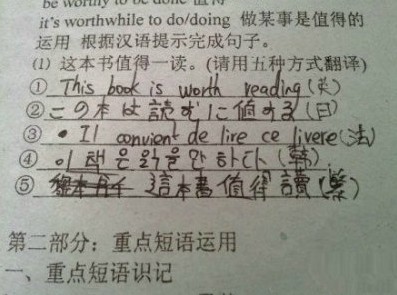 be worthy to be done 值得
it's worthwhile to do/doing 做某事是值得的
运用 根据汉语提示完成句子。
(1) 这本书值得一读。(请用五种方式翻译)
① This book is worth reading (英)
② この本は読むに値する (日)
③ • Il convient de lire ce livere (法)
④ 이 책은 읽을만 하다 (韩)
⑤ 這本書值得讀 (繁)
第二部分：重点短语运用
一、重点短语识记